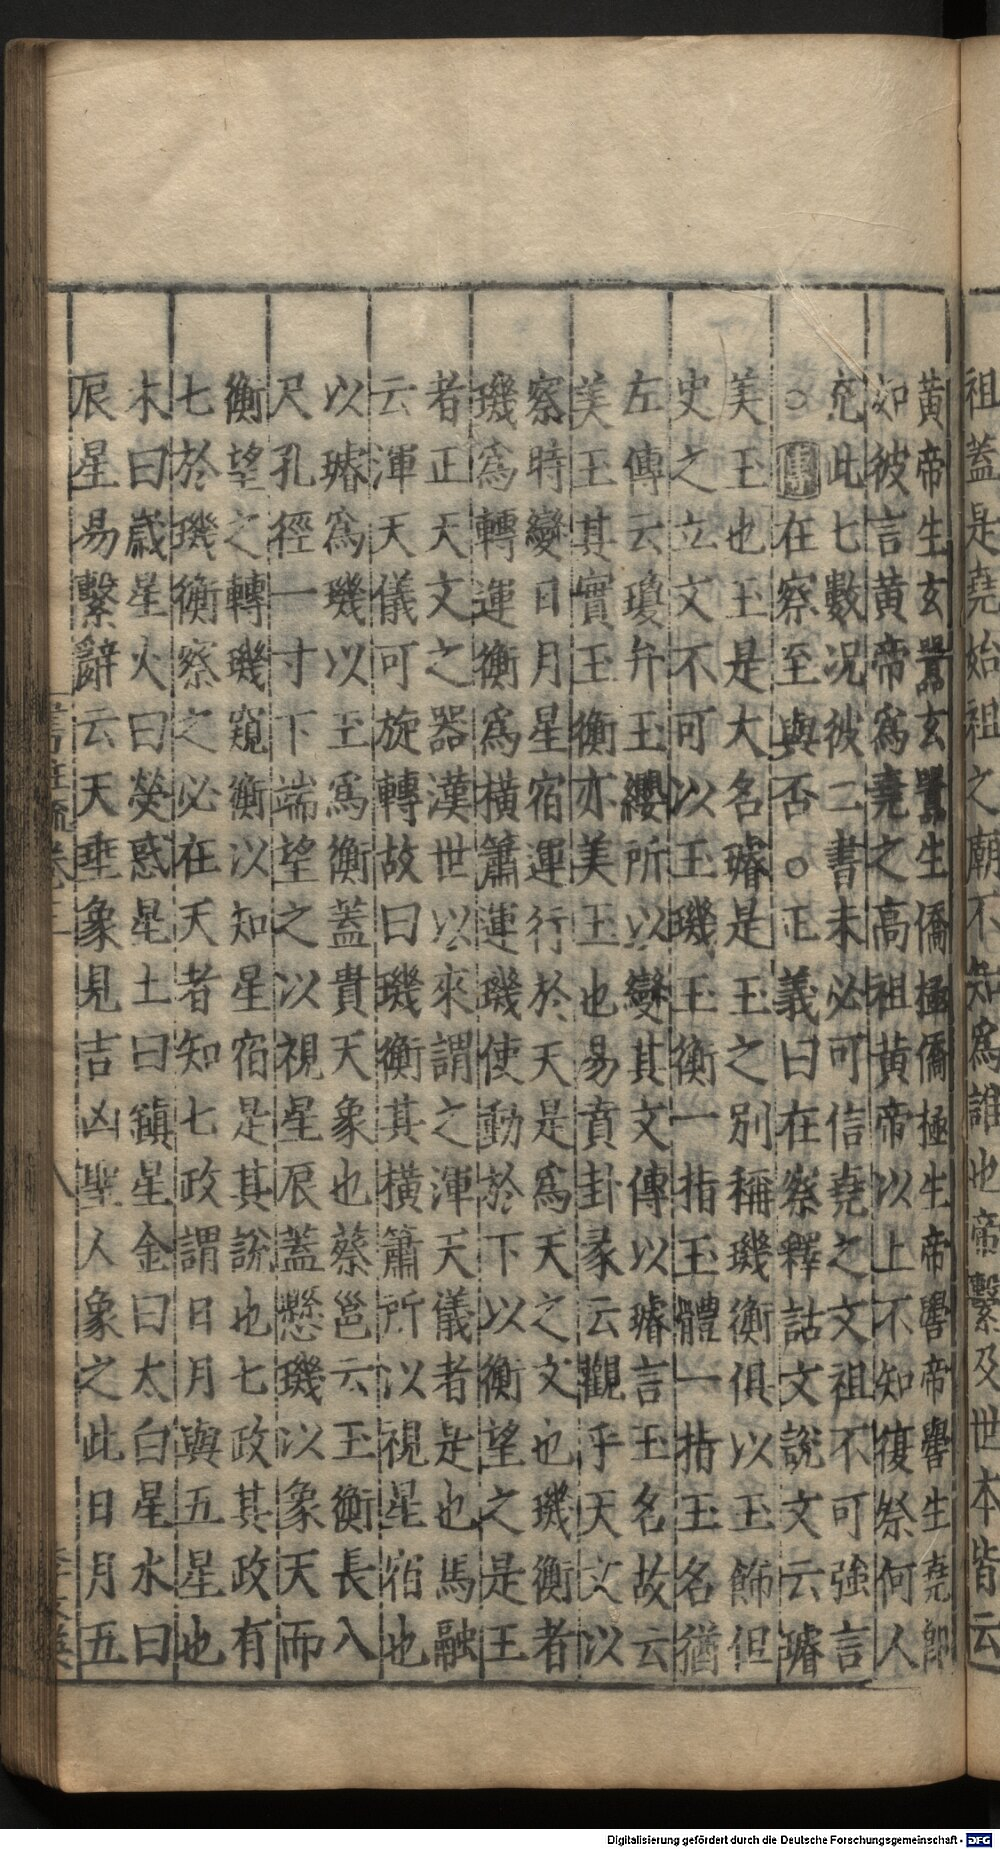 祖蓋是堯始祖之廟不知爲誰也帝繫及世本皆云
黃帝生玄囂玄囂生僑極僑極生帝嚳帝嚳生堯即
如彼言黃帝爲堯之高祖黃帝以上不知復祭何人
充此七數况彼二書未必可信堯之文祖不可強言
○傳在察至與否○正義曰在察釋詁文說文云璿
美玉也玉是大名璿是玉之別稱璣衡俱以玉飾但
史之立文不可以玉璣玉衡一指玉體一指玉名猶
左傳云瓊弁玉纓所以變其文傳以璿言玉名故云
美玉其實玉衡亦美玉也易賁卦彖云觀乎天文以
察時變日月星宿運行於天是爲天之文也璣衡者
璣爲轉運衡爲橫簫運璣使動於下以衡望之是王
者正天文之器漢世以來謂之渾天儀者是也馬融
云渾天儀可旋轉故曰璣衡其橫簫所以視星宿也
以璿爲璣以玉爲衡蓋貴天象也蔡邕云玉衡長八
尺孔徑一寸下端望之以視星辰蓋懸璣以象天而
衡望之轉璣窺衡以知星宿是其說也七政其政有
七於璣衡察之必在天者知七政謂日月與五星也
木曰歲星火曰熒惑星土曰鎮星金曰太白星水曰
辰星易繫辭云天垂象見吉凶聖人象之此日月五
八
Digitalisierung gefördert durch die Deutsche Forschungsgemeinschaft - DFG